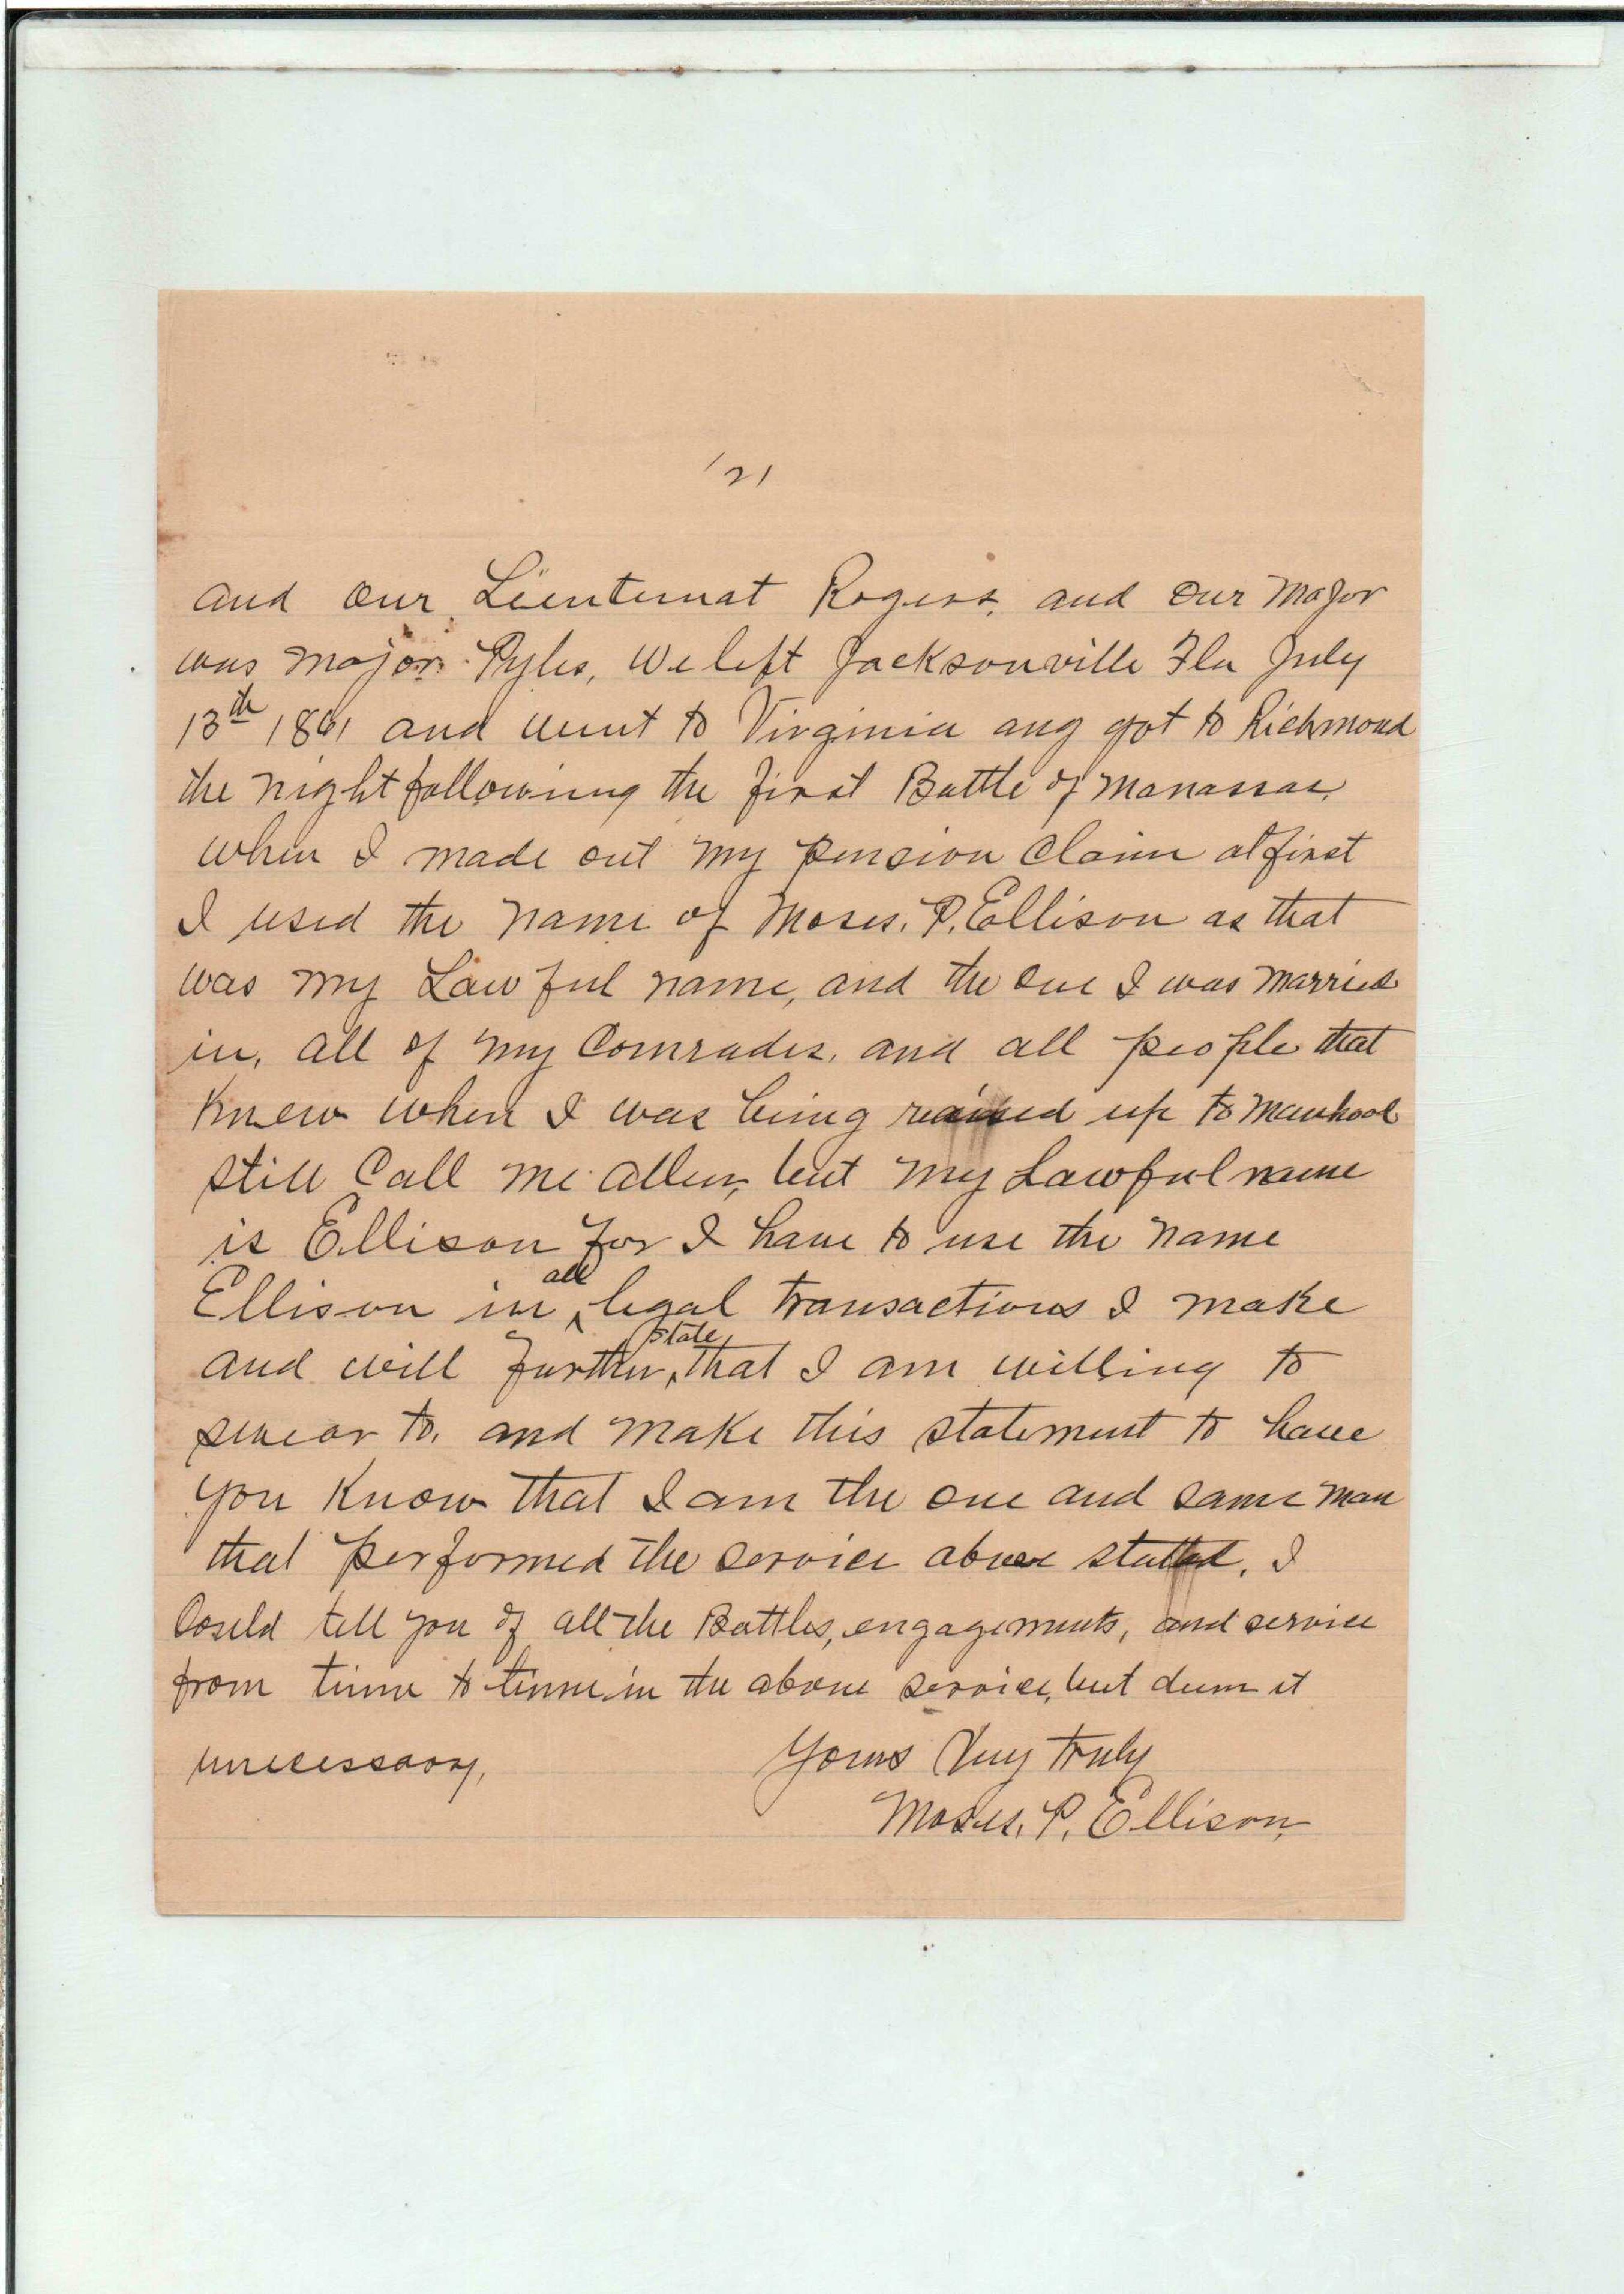 '21
and our Lieuternat Rogers, and our Major
was Major Pyles, We left Jacksonville Fla July
13th 1861 and went to Virginia ang got to Richmond
the night following the first Battle of Manassas,
when I made out my pension Claim at first
I used the name of Moses. P. Ellison as that
was my Lawful name, and the one I was married
in, all of my Comrades, and all people that
Knew when I was being raised up to manhood
still Call me Allen, but my Lawful name
is Ellison for I have to use the name
Ellison in all legal transactions I make
and will further state that I am willing to
swear to, and make this statement to have
you Know that I am the one and same man
that performed the service above stated, I
Could tell you of all the Battles, engagements, and service
from time to time in the above service, but deem it
unecessary, Yours Very truly
Moses. P. Ellison